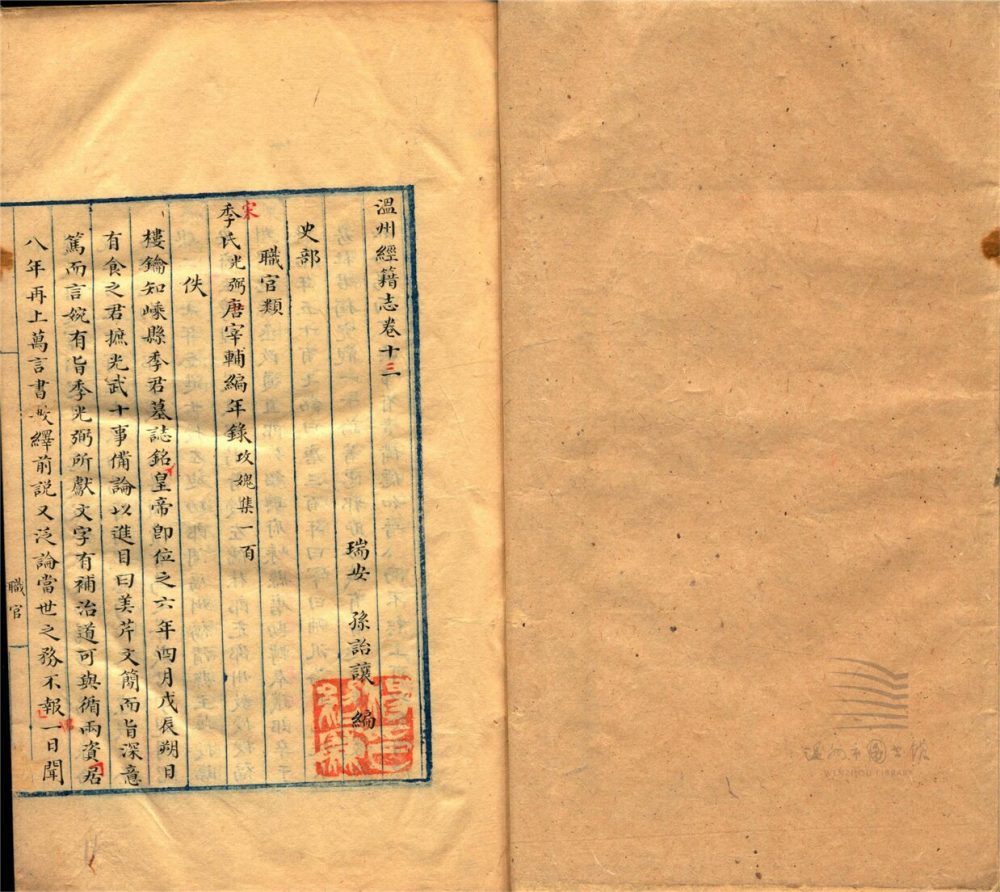 溫州經籍志卷十三
瑞安 孫詒讓 編
史部
職官類
宋
季氏光弼唐宰輔編年錄攻媿集一百
佚
樓鑰知嵊縣季君墓誌銘皇帝卽位之六年四月戊辰朔日
有食之君摭光武十事備論以進目曰美芹文簡而旨深意
篤而言婉有旨季光弼所獻文字有補治道可與循兩資居
八年再上萬言書敷繹前説又泛論當世之務不報一日聞
職官
WENZHOU LIBRARY